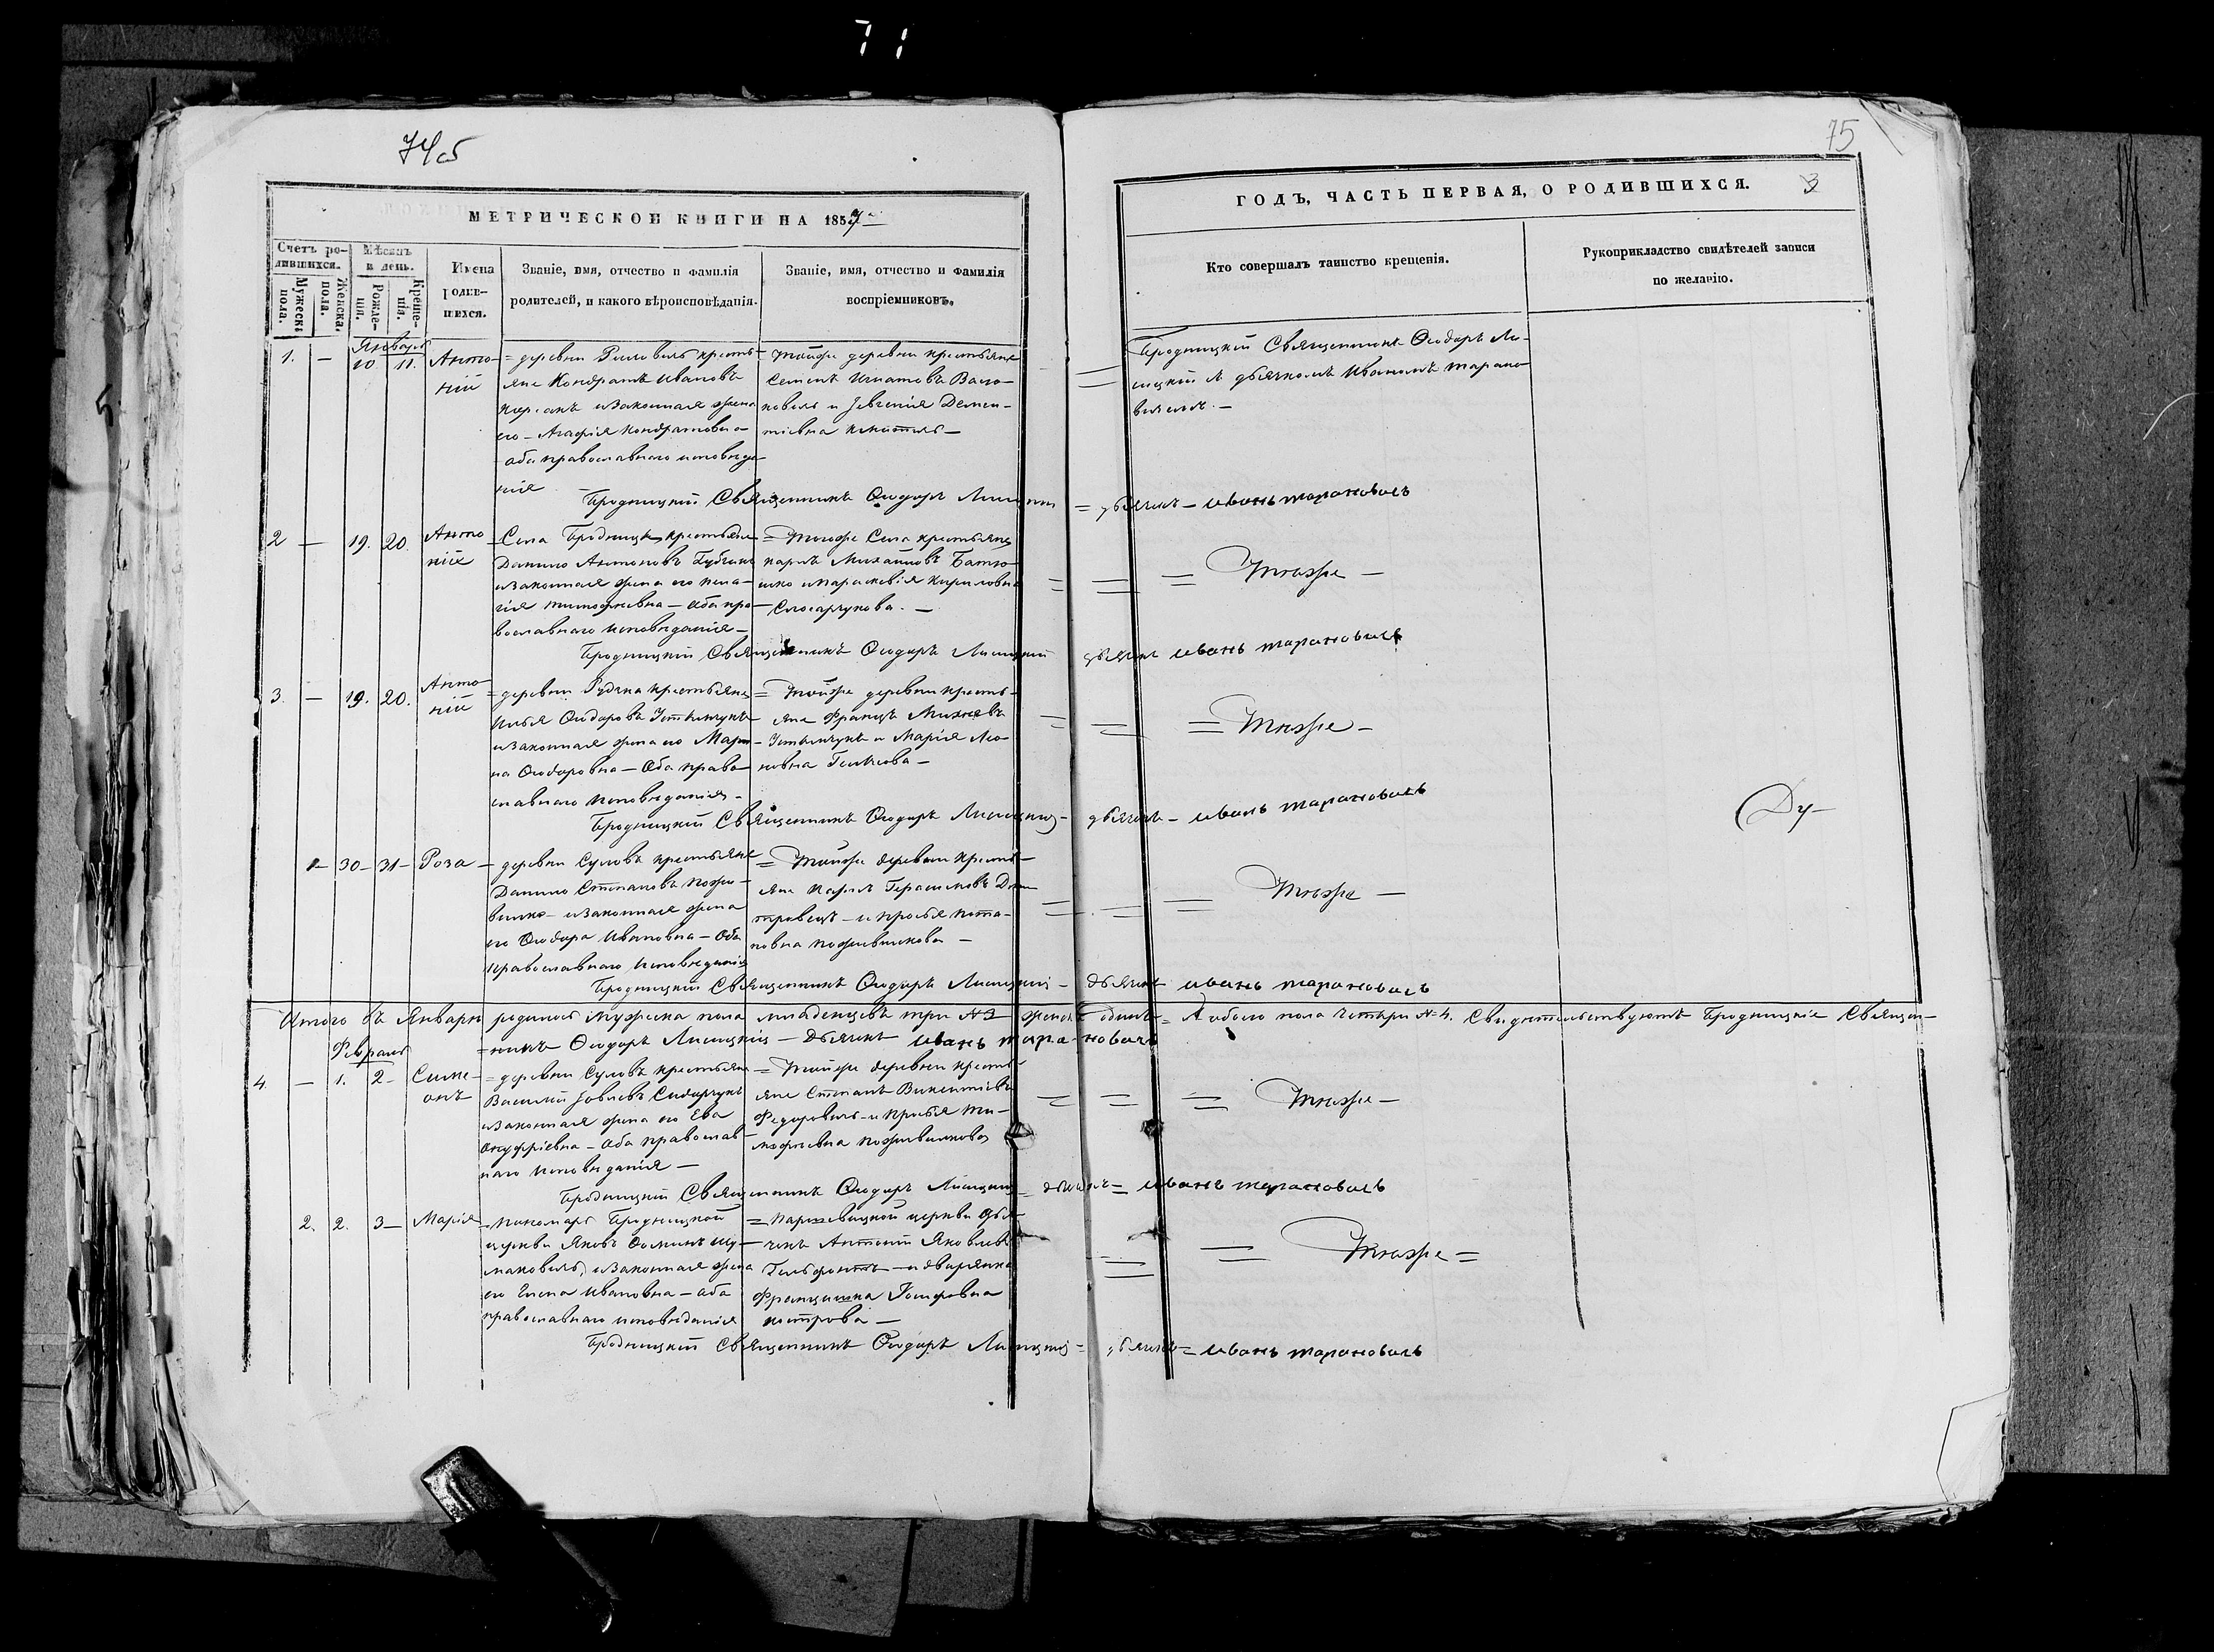 71
74об
75
МЕТРИЧЕСКОЙ КНИГИ НА 1857
ГОДЪ, ЧАСТЬ ПЕРВАЯ, О РОДИВШИХСЯ.
3
Счетъ родившихся.
Мужеска пола.
Женска. пола.
Мѣсяцъ и день.
Рожденія.
Крещенія.
Имена родившихся.
Званіе, имя, отчество и фамилія
родителей, и какого вѣроисповѣданія.
Званіе, имя, отчество и фамилія
воспріемниковъ.
Кто совершалъ таинство крещенія.
Рукоприкладство свидѣтелей записи
по желанію.
Январь
1. — 10 11. Анто-
ній
= деревни крестья-
не Кондратъ Ивановъ
изаконная жена
его – Агафія Кондратовна
оба православнаго исповѣда-
нія
= тойже деревни крестьяне
Семенъ Игнатовъ
и Евгенія Демен-
тіевна
Бродницкій Священникъ Ѳеодоръ Ли-
сицкій съ дьячкомъ Иваномъ Тарано-
вичемъ. —
Бродницкій Священникъ Ѳеодоръ Лисицкій = дьячекъ – Иванъ Тарановичъ
2 — 19. 20. Анто
ній
Села Бродницы крестьяне
Данило Антоновъ
изаконная жена его Пела-
гія Тимофеевна — оба пра-
вославнаго исповѣданія —
= Тогоже Села крестьяне
Карпъ Михайловъ
и Параскевія Кириловна
Слюсарчукова. —
= = = Тѣже —
Бродницкій Священникъ Ѳеодоръ Лисицкій дьячекъ Иванъ Тарановичъ
3. — 19. 20. Анто
ній
= деревни Рудка крестьяне
Илья Ѳеодоровъ Устимчукъ
изаконная жена его Мари-
на Ѳеодоровна — Оба право-
славнаго исповѣданія —
= Тойже деревни кресть-
яне Францъ
Устимчукъ и Марія Лео-
новна —
= = = Тѣже —
Бродницкій Священникъ Ѳеодоръ Лисицкій – дьячекъ – Иванъ Тарановичъ
1 – 30 – 31 – Роза
– деревни Суловъ крестьяне
Данило Степановъ
изаконная жена
его Ѳеодора Ивановна — Оба
православнаго исповѣданія
= Тойже деревни кресть-
яне Карпъ Герасимовъ
— и
повна —
= = = Тѣже —
Бродницкій Священникъ Ѳеодоръ Лисицкій – дьячекъ Иванъ Тарановичъ
Итого въ Январѣ родилось мужеска пола младенцевъ три №3 женска одинъ = А обоего пола четыри №4. Свидѣтельствуютъ Бродницкіе Священ-
= никъ Ѳеодоръ Лисицкій — Дьячекъ Иванъ Тарановичъ
Февраль
4 — 1. 2 – Симе-
онъ
= деревни Суловъ крестьяне
Василій Іовлевъ Сидорчукъ
изаконная жена его Ева
Онуфріевна — оба православ-
наго исповѣданія —
= Тойже деревни кресть-
яне Степанъ Викентіевъ
Федоровичъ – и Ти-
мофеевна
= = = Тѣже —
Бродницкій Священникъ Ѳеодоръ Лисицкій = дьячекъ = Иванъ Тарановичъ
2. 2. 3 — Марія
– Пономарь Бродницкой
церкви Яковъ Ѳоминъ Шу-
маковичъ, изаконная жена
его Елена Ивановна — оба
православнаго исповѣданія
= церкви дья-
чекъ Антоній Яковлевъ
— и дворянка
Францишка Іосифовна
—
= = Тѣже =
Бродницкій Священникъ Ѳеодоръ Лисицкій = дьячекъ = Иванъ Тарановичъ